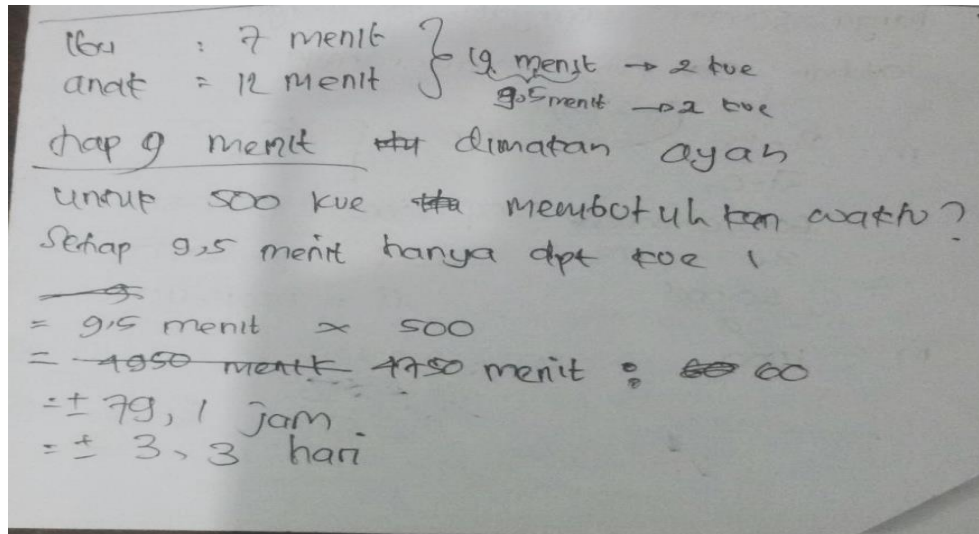 Ibu : 7 menit } 19 menit → 2 kue
anak = 12 menit 9.5 menit → 2 kue
tiap 9 menit dimakan ayah
untuk 500 kue membutuhkan waktu?
Setiap 9,5 menit hanya dpt kue 1
= 9,5 menit × 500
= 4950 menit 4750 menit : 60
= ± 79,1 jam
= ± 3,3 hari